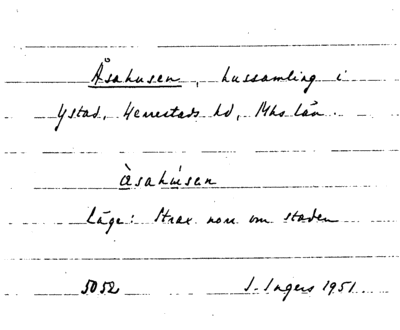 Åsahusen, hussamling i
Ystad, Herrestads hd, Mhs län.
àsahúsen
Läge: Strax norr om staden
5052 I. Ingers 1951.